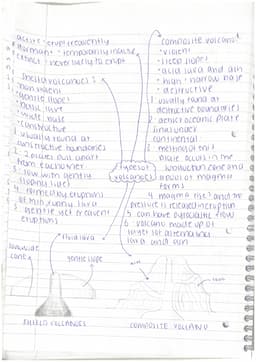 active - erupt frequently
dormant - temporarily inactive
extinct - never likely to erupt
shield volcanoes:
• non violent
• gentle slopes
• basic lava
• wide base
• constructive
1. usually found at
constructive boundaries
2. plates pull apart
from each other
3. low with gently
sloping sides
4. formed by eruptions
of thin runny lava
5. gentle yet frequent
eruptions
types of
volcanoes
composite volcano:
• violent
• steep slopes
• acid lava and ash
• high + narrow base
• destructive
1. usually found at
destructive boundaries
2. oceanic plate
sinks under
continental
3. melting of
plate occurs in the
subduction zone and
a pool of magma
forms
4. magma rises and the
pressure is released in eruption
5. can have pyroclastic flow
6. volcano made up of
layers of alternating
lava and ash
fluid lava
low, wide
cone
gentle slope
SHIELD VOLCANOES
COMPOSITE VOLCANO